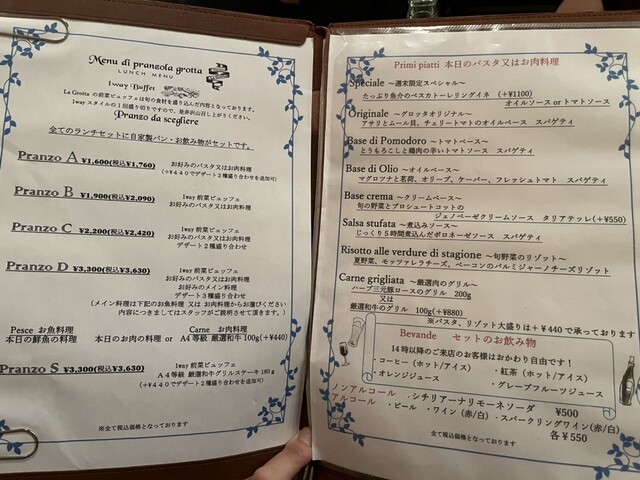 Menu di pranzola grotta
LUNCH MENU
1way Buffet
La Grotta の前菜ビュッフェは旬の食材を盛り込んだ内容となっております。
1way スタイルの1回盛り切りですので、是非沢山召し上がりください。
Pranzo da scegliere
全てのランチセットに自家製パン・お飲み物がセットです。
Pranzo A ¥1,600(税込¥1,760)
お好みのパスタ又はお肉料理
(+¥440でデザート2種盛り合わせを追加可)
Pranzo B ¥1,900(¥2,090)
1way 前菜ビュッフェ
お好みのパスタ又はお肉料理
Pranzo C ¥2,200(¥2,420)
1way 前菜ビュッフェ
お好みのパスタ又はお肉料理
デザート2種盛り合わせ
Pranzo D ¥3,300(¥3,630)
1way 前菜ビュッフェ
お好みのパスタ又はお肉料理
お好みのメイン料理
デザート3種盛り合わせ
(メイン料理は下記のお魚料理 又は お肉料理からお選びください
内容につきましてはスタッフがご説明させて頂きます。)
Pesce お魚料理 Carne お肉料理
本日の鮮魚の料理 本日のお肉の料理 or A4等級 厳選和牛 100g(+¥440)
Pranzo S ¥3,300(税込¥3,630)
1way 前菜ビュッフェ
A4等級 厳選和牛グリルステーキ 180g
(+¥440でデザート2種盛り合わせを追加可)
※全て税込価格となっております
Primi piatti 本日のパスタ又はお肉料理
Speciale ～週末限定スペシャル～
たっぷり魚介のペスカトーレリングイネ (+¥1100)
オイルソース or トマトソース
Originale ～グロッタオリジナル～
アサリとムール貝、チェリートマトのオイルベース スパゲティ
Base di Pomodoro ～トマトベース～
とうもろこしと鶏肉の辛いトマトソース スパゲティ
Base di Olio ～オイルベース～
マグロツナと茗荷、オリーブ、ケーパー、フレッシュトマト スパゲティ
Base crema ～クリームベース～
旬の野菜とプロシュートコットの
ジェノベーゼクリームソース タリアテッレ(+¥550)
Salsa stufata ～煮込みソース～
じっくり5時間煮込んだボロネーゼソース スパゲティ
Risotto alle verdure di stagione ～旬野菜のリゾット～
夏野菜、モッツァレラチーズ、ベーコンのパルミジャーノチーズリゾット
Carne grigliata ～厳選肉のグリル～
ハーブ三元豚ロースのグリル 200g
又は
厳選和牛のグリル 100g(+¥880)
※パスタ、リゾット大盛りは+¥440で承っております
Bevande セットのお飲み物
14時以降のご来店のお客様はおかわり自由です!
・コーヒー(ホット/アイス) ・紅茶(ホット/アイス)
・オレンジジュース ・グレープフルーツジュース
ノンアルコール ・シチリアーナリモーネソーダ ¥500
アルコール ・ビール ・ワイン(赤/白) ・スパークリングワイン(赤/白)
各¥550
※全て税込価格となっております